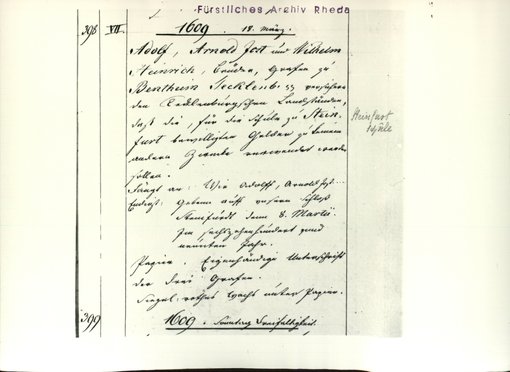 Fürstliches Archiv Rheda
398 VII 1609. 18. März.
Adolf, Arnold Jost und Wilhelm
Heinrich, Brüder, Grafen zu
Bentheim Tecklenb.
den Tecklenburgischen Landständen,
daß die, für die Schule zu Stein-
furt bewilligten Gelder zu keinem
andern Zwecke verwendet werden
sollen.
Fängt an: Wir Adolff, Arnold Jost
Endigt: Gebenn auff unserm Schloß
Steinfurdt denn 8. Martii
Im sechszehenhundert und
neunten Jahr.
Papier. Eigenhändige Unterschrift
der drei Grafen.
Siegel: rothes Wachs unter Papier.
Steinfurt
Schule
399 1609. Sonntag Dreifaltigkeit.